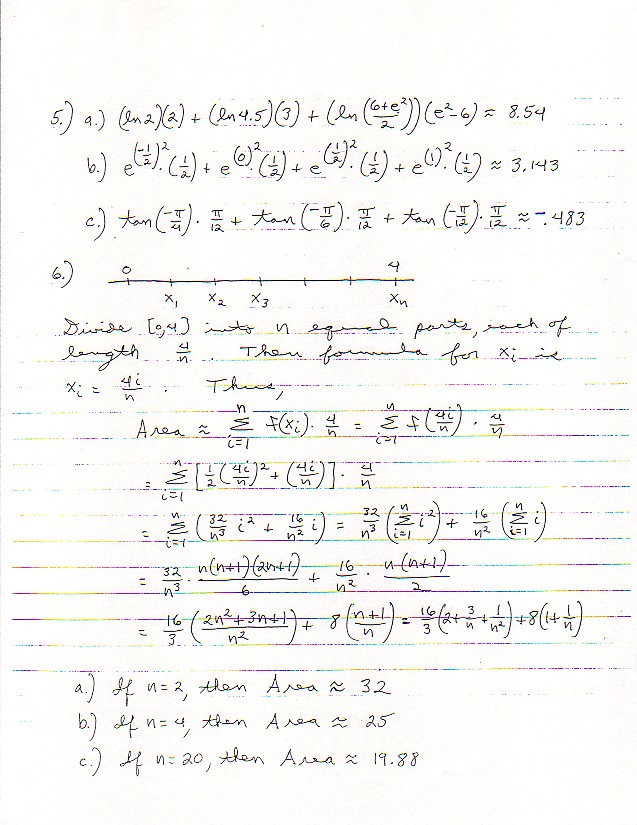 5.) a.) (ln 2)(2) + (ln 4.5)(3) + (ln ((6+e²)/2))(e²-6) ≈ 8.54
b.) e^(-1/2)²·(1/2) + e^(0)²·(1/2) + e^(1/2)²·(1/2) + e^(1)²·(1/2) ≈ 3.143
c.) tan(-π/4)·π/12 + tan(-π/6)·π/12 + tan(-π/12)·π/12 ≈ -.483
6.) 0 4
x₁ x₂ x₃ xₙ
Divide [0,4] into n equal parts, each of
length 4/n. Then formula for xᵢ is
xᵢ = 4i/n. Thus,
Area ≈ Σᵢ₌₁ⁿ f(xᵢ)·4/n = Σᵢ₌₁ⁿ f(4i/n)·4/n
= Σᵢ₌₁ⁿ [1/2(4i/n)² + (4i/n)]·4/n
= Σᵢ₌₁ⁿ (32/n³ i² + 16/n² i) = 32/n³ (Σᵢ₌₁ⁿ i²) + 16/n² (Σᵢ₌₁ⁿ i)
= 32/n³ · n(n+1)(2n+1)/6 + 16/n² · n(n+1)/2
= 16/3 ((2n²+3n+1)/n²) + 8((n+1)/n) = 16/3(2+3/n+1/n²)+8(1+1/n)
a.) If n=2, then Area ≈ 32
b.) If n=4, then Area ≈ 25
c.) If n=20, then Area ≈ 19.88